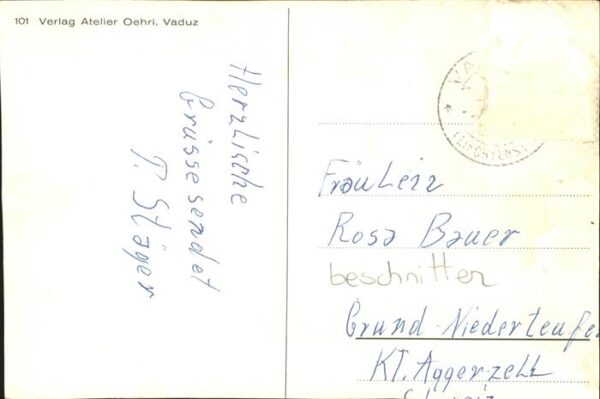 101 Verlag Atelier Oehri, Vaduz
Herzlische
Grüsse sendet
P. Stäger
Fräulein
Rosa Bauer
beschnitten
Grund-Niederteufe
KT. Aggerzell